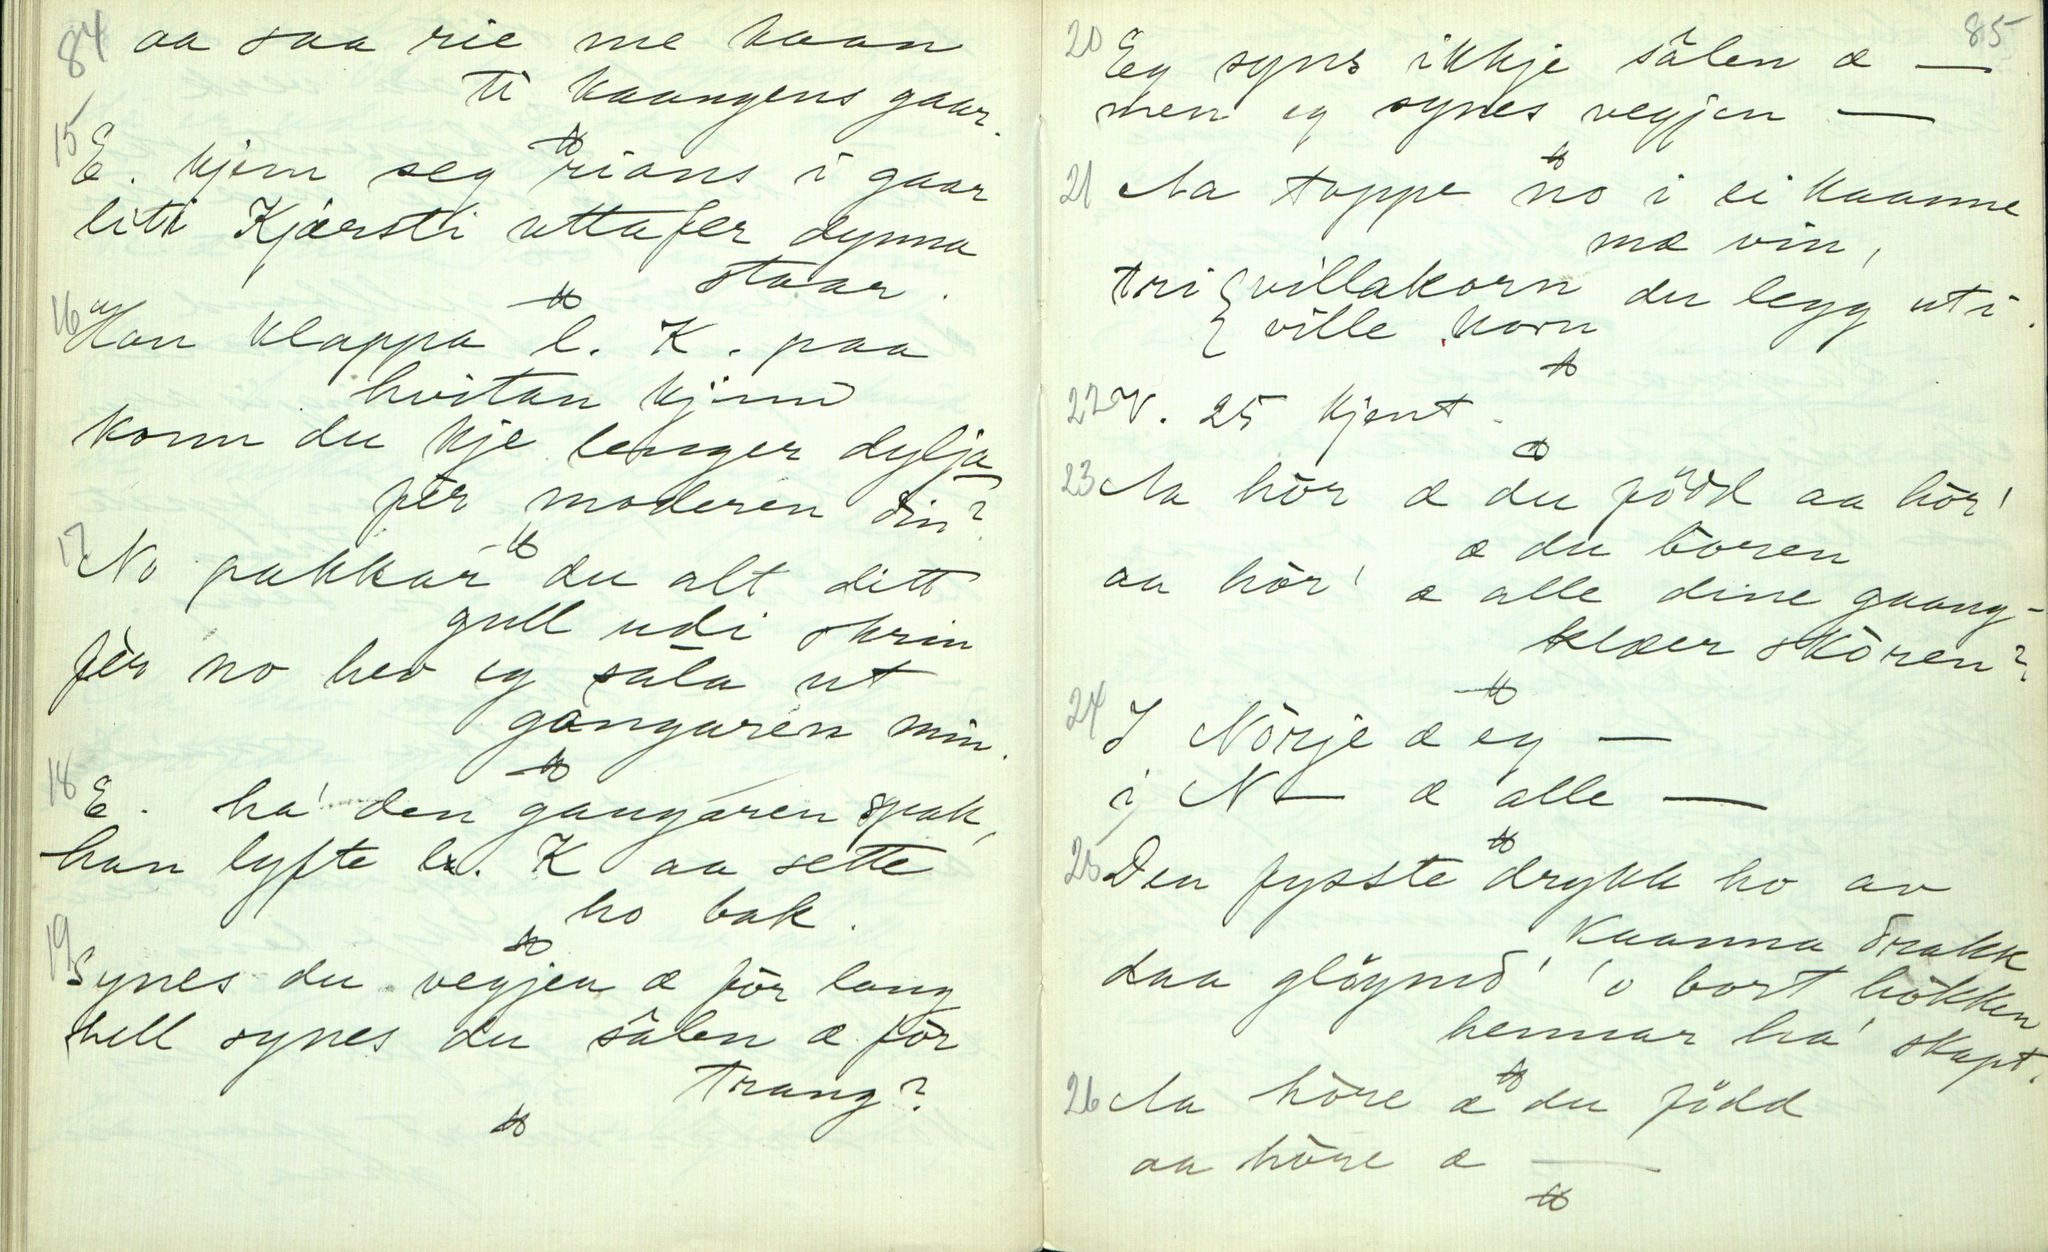 84
aa saa rie me baan
ti kaangens gaar.
15 E. kjem seg rians i gaar
liti Kjersti uttafer dynna
staar.
16 Han klappa l. K. paa
hvitan kjinn
konn du kje lenger dylja
fer moderen din?
17 No pakkar du alt ditt
gull udi skrin
fèr no hev eg sâla ut
gangaren min.
18 E. ha' den gangaren spak,
han lyfte l. K aa sette
ho bak.
19 Synes du vegjen æ fòr lang
hell synes du sâlen æ fòr
trang?
85
20 Eg syns ikkje sâlen æ —
men eg synes vegjen —
21 Aa toppe no i ei kaanne
mæ vin,
tri villakorn du legg uti.
ville korn
22 V. 25 kjent.
23 Aa hòr æ du född aa hòr'
æ du boren
aa hòr' æ alle dine gaang-
klæer skòren?
24 I Nörje æ eg —
i N— æ alle —
25 Den fysste drykk ho av
kaanna drakk
daa glöymd' 'o bort hokken
hennar ha' skapt.
26 Aa hòre æ du född
aa hòre æ —